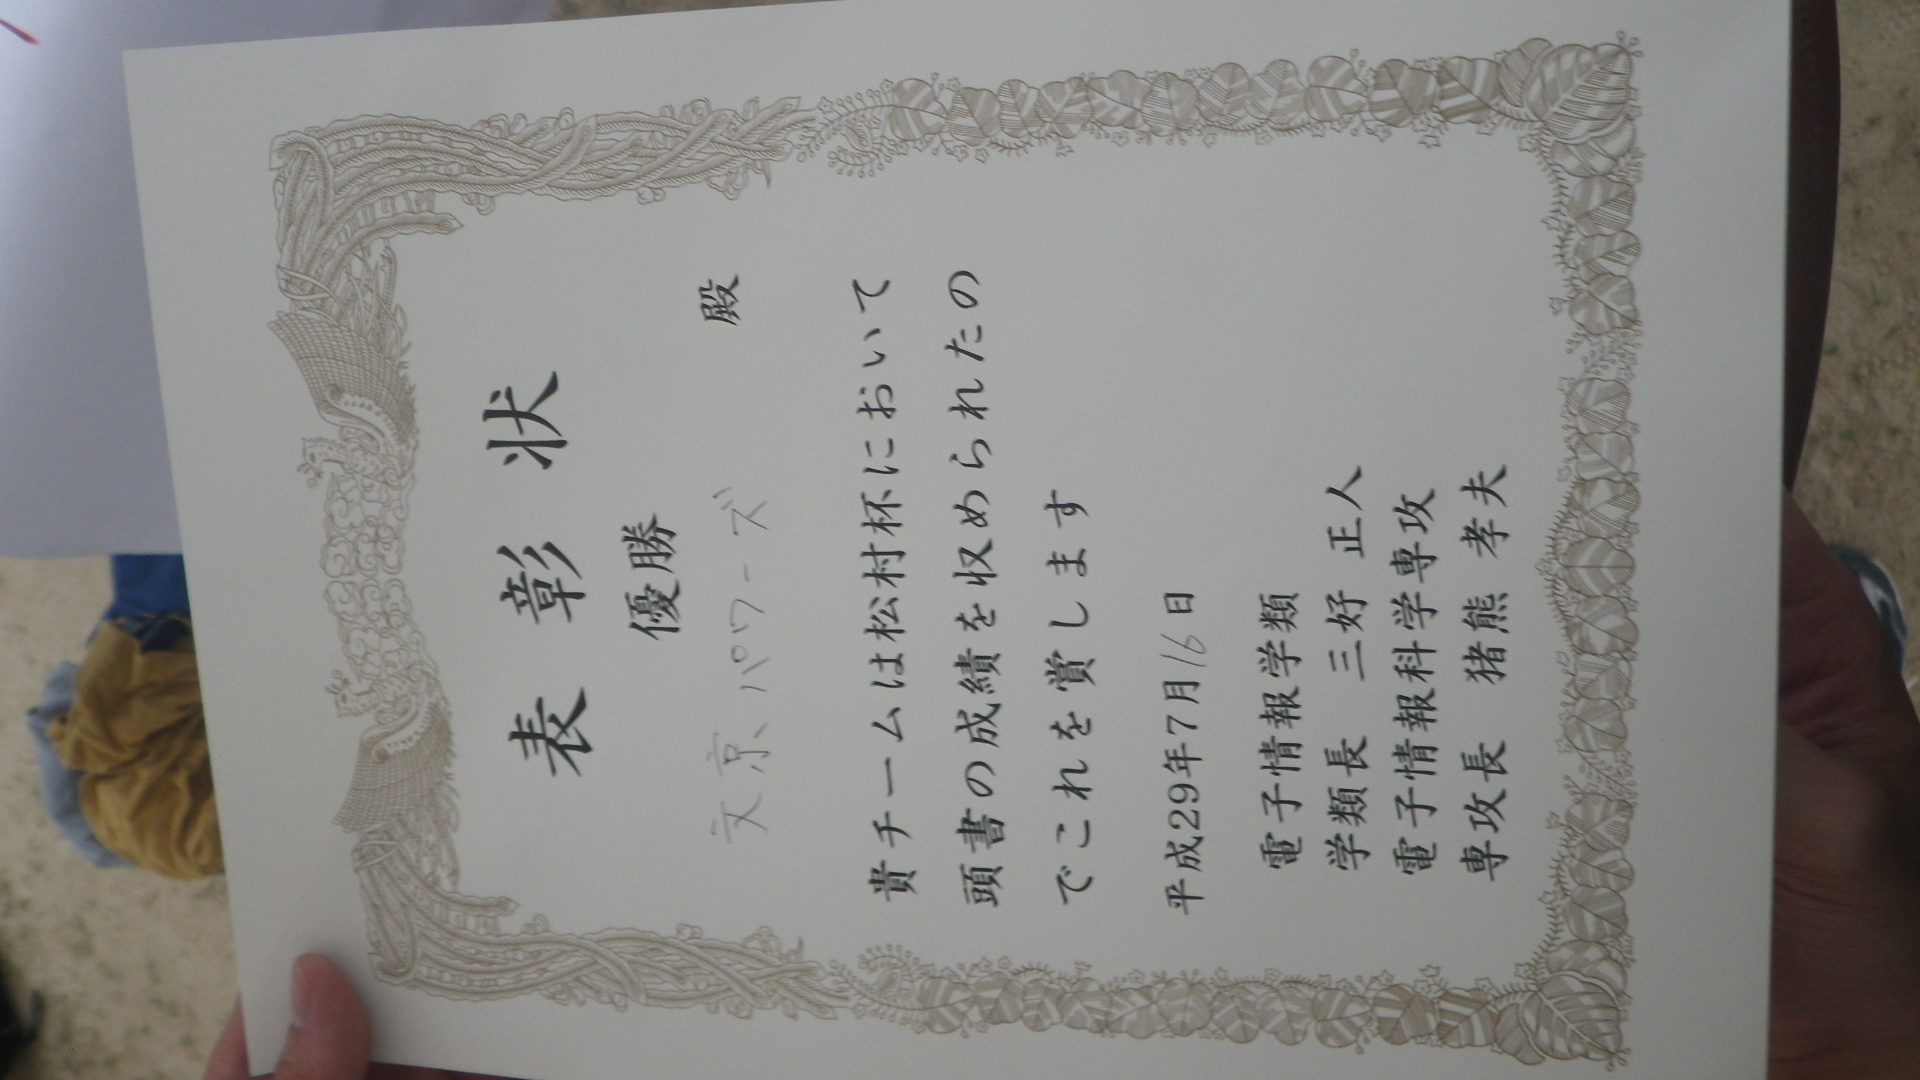 表彰状
優勝
文京パワーズ 殿
貴チームは松村杯において
頭書の成績を収められたの
でこれを賞します
平成29年7月16日
電子情報学類
学類長 三好 正人
電子情報科学専攻
専攻長 猪熊 孝夫